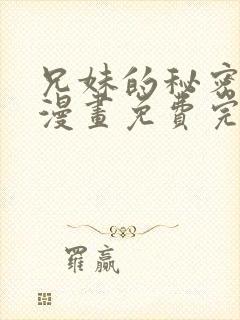 兄妹的秘密
漫畫免費完
羅贏